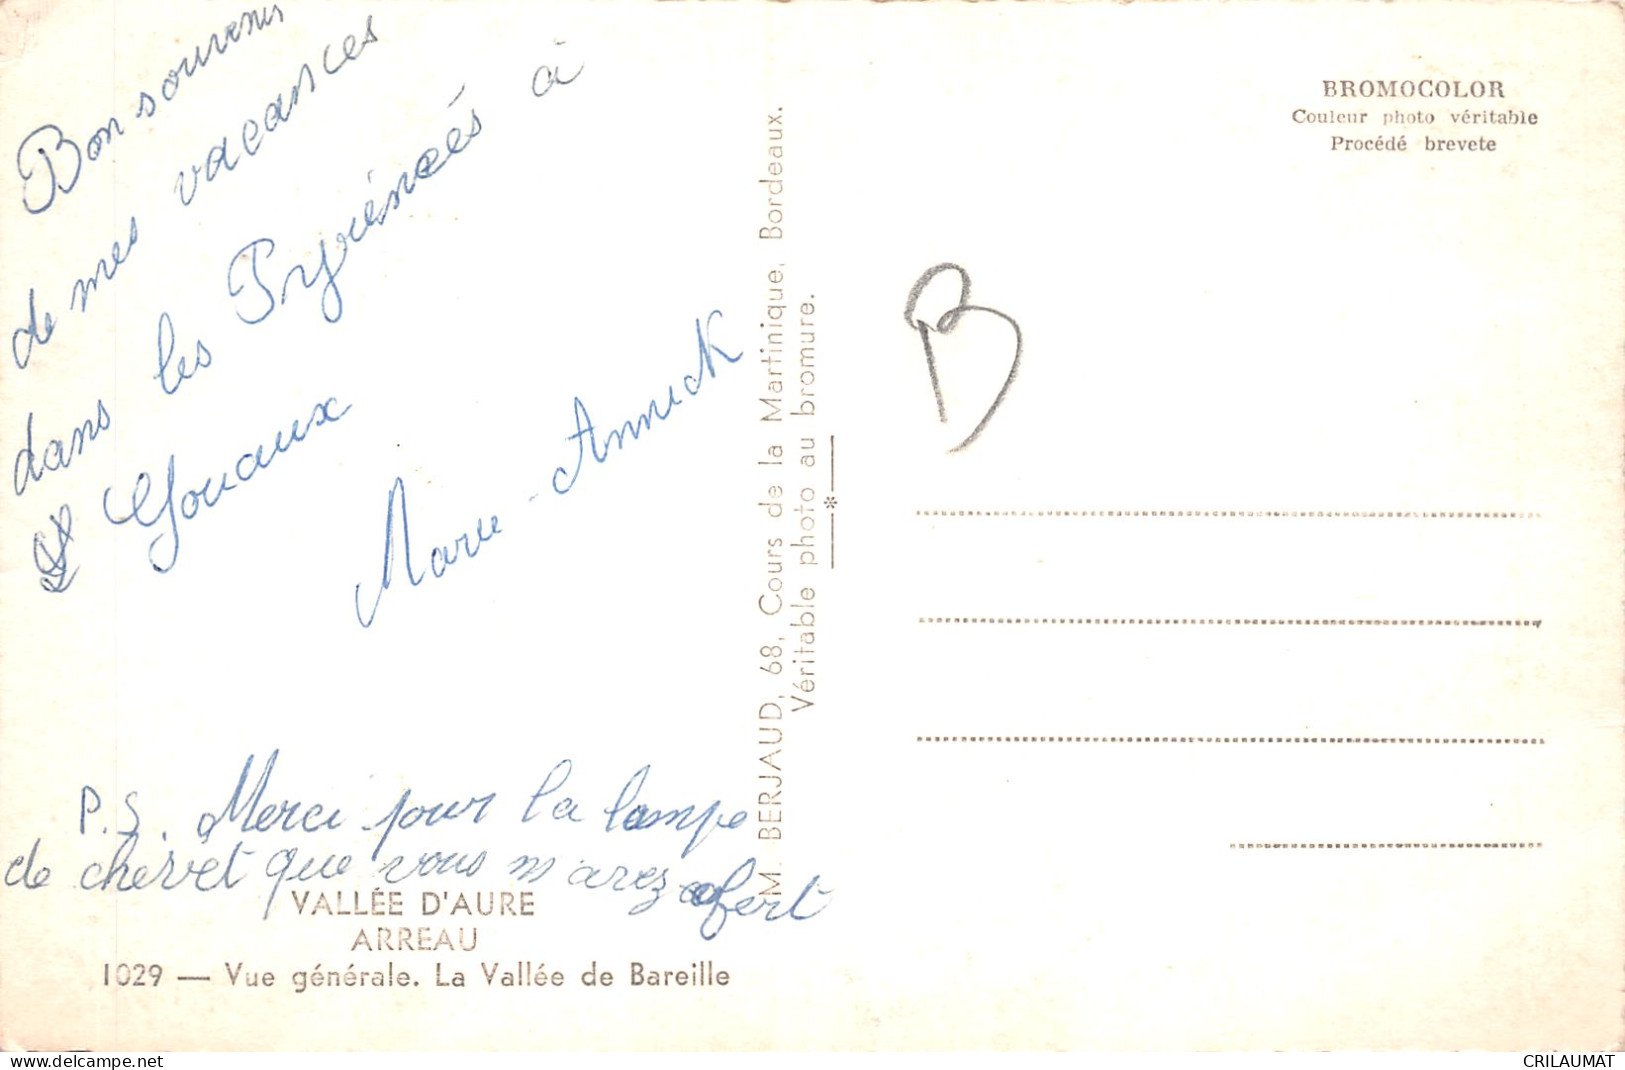 Bon souvenir
de mes vacances
dans les Pyrénées à
Gouaux
Marie-Annick
P.S. Merci pour la lampe
de chevet que vous m'avez ofert
VALLÉE D'AURE
ARREAU
1029 — Vue générale. La Vallée de Bareille
M. BERJAUD, 68, Cours de la Martinique, Bordeaux.
Véritable photo au bromure.
BROMOCOLOR
Couleur photo véritable
Procédé brevete
B
www.delcampe.net
CRILAUMAT